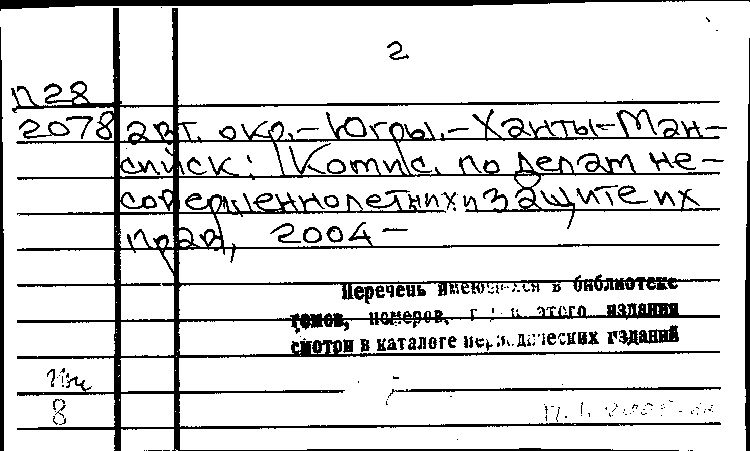 2
П28
2078 авт. окр.-Югры.-Ханты-Ман-
сийск: [Комис. по делам не-
совершеннолетних и защите их
прав], 2004-
Перечень имеющихся в библиотеке
томов, номеров, этого издания
смотри в каталоге периодических изданий
8